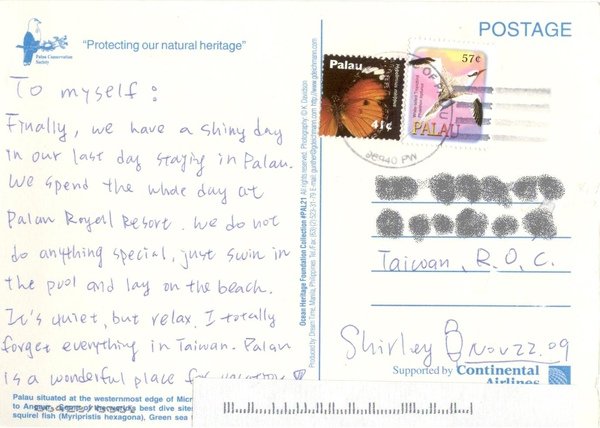 Palau Conservation
Society
"Protecting our natural heritage"
POSTAGE
To myself:
Finally, we have a shiny day
in our last day staying in Palau.
We spend the whole day at
Palau Royall Resort. We do not
do anything special, just swin in
the pool and lay on the beach.
It's quiet, but relax. I totally
forget everything in Taiwan. Palau
is a wonderful place for vacation
Palau
41¢
57¢
PALAU
96940 PW
Ocean Heritage Foundation Collection #PAL21 All rights reserved. Photography: © K. Davidson
Produced by Dream Time, Manila, Philippines Tel./Fax: (63/2) 523-31-79 E-mail: gunther@gdeichmann.com http://www.gdeichmann.com
Taiwan, R.O.C.
Shirley Nov 22. 09
Supported by Continental
Airlines
Palau situated at the westernmost edge of Micr
best dive sites
squirrel fish (Myripristis hexagona), Green sea